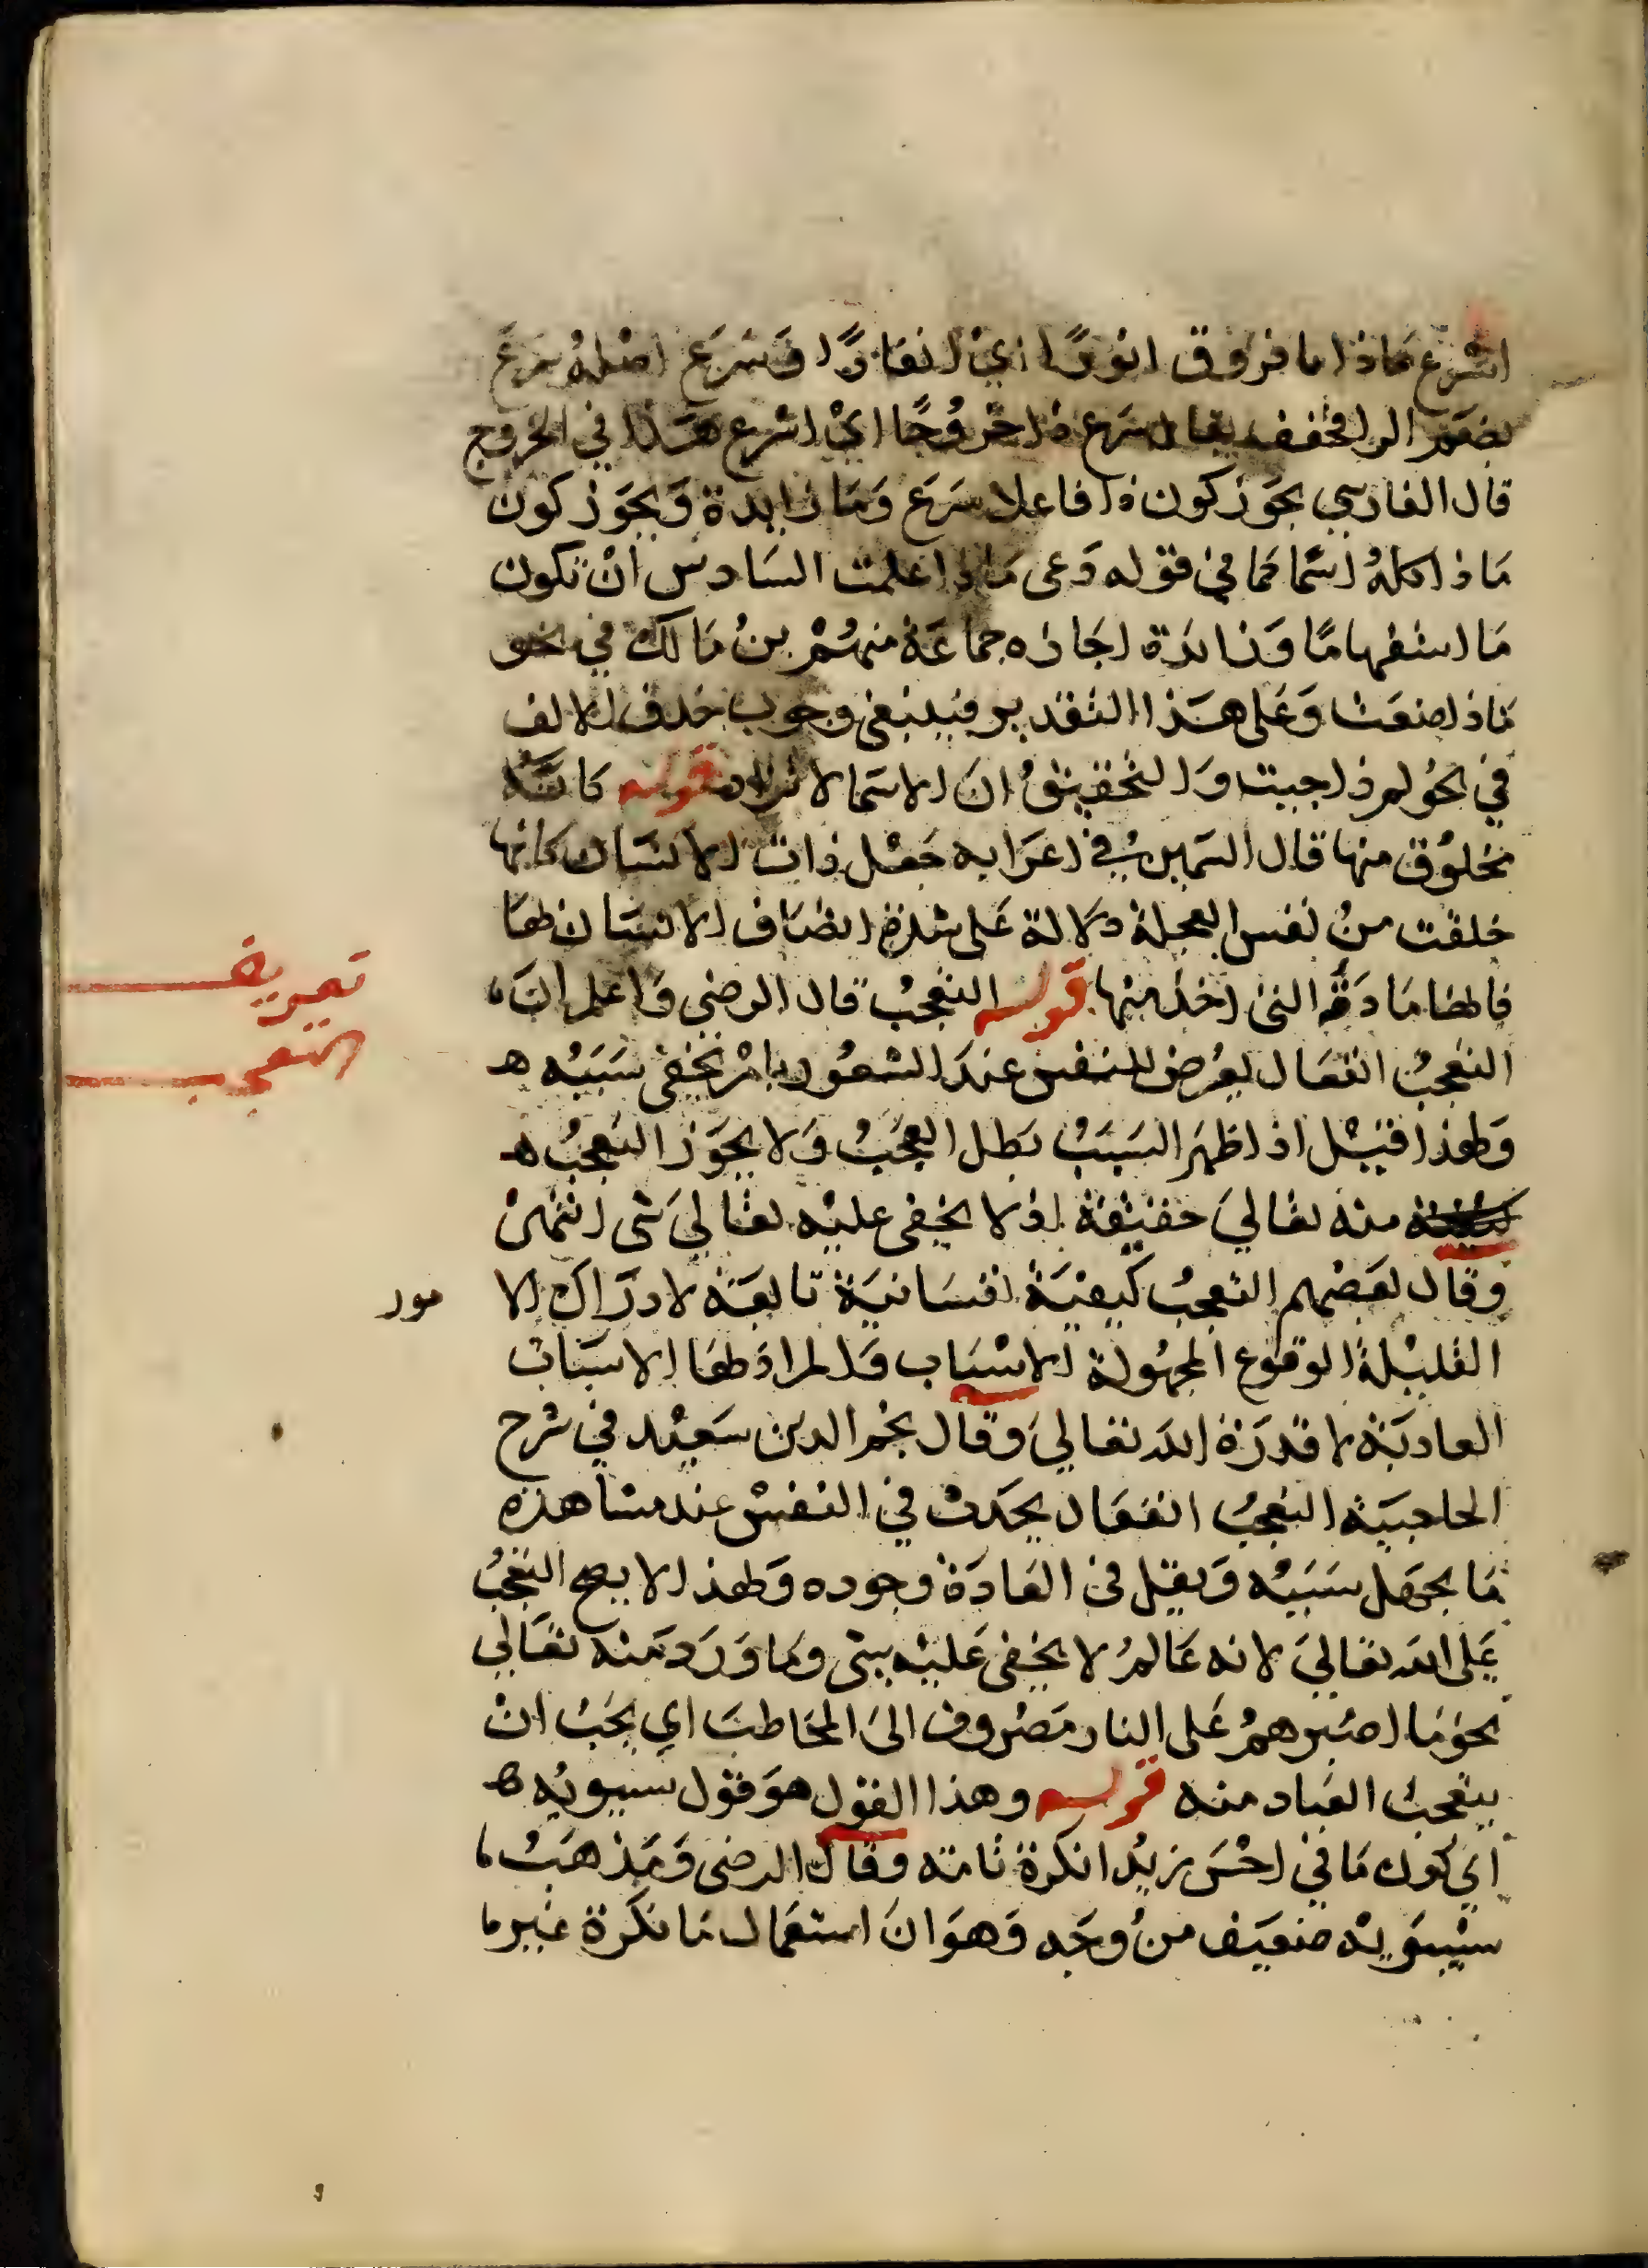 اسرع ماذا ما فروق انورًا اي انفارًا وسرع اصله سرع
بضم الرا فخفف يقال سرع ذا خروجًا اي اسرع هذا في الخروج
قال الفارسي يجوز كون ذا فاعلا سرع وما زايدة ويجوز كون
ماذا كله اسمًا كما في قوله دعي ماذا علمت السادس ان تكون
ما استفهامًا وذا زايدة اجازه جماعة منهم بن مالك في نحو
ماذا صنعت وعلى هذا التقدير فينبغي وجوب حذف الالف
في نحو لم ذا جيت والتحقيق ان الاسما لا تزاد قوله كانه
مخلوق منها قال السمين في اعرابه جعل ذات الانسان كانها
خلقت من نفس العجلة دلالة على شدة اتصاف الانسان لها
فالها مادته التي اخذ منها قوله التعجب قال الرضي واعلم ان
التعجب انفعال يعرض للنفس عند الشعور بامر يخفى سببه ه
ولهذا قيل اذا ظهر السبب بطل العجب ولا يجوز التعجب ه
منه تعالي حقيقة اذ لا يخفى عليه تعالي شي انتهى
وقال بعضهم التعجب كيفية نفسانية تابعة لادراك الا مور
القليلة الوقوع المجهولة الاسباب والمراد لها الاسباب
العادية لا قدرة الله تعالي وقال نجم الدين سعيد في شرح
الحاجبية التعجب انفعال يحدث في النفس عند مشاهدة
ما يجهل سببه ويقل في العادة وجوده ولهذا لا يصح التعجب
على الله تعالي لانه عالم لا يخفى عليه شي وما ورد منه تعالي
نحو ما اصبرهم على النار مصروف الى المخاطب اي يجب ان
يتعجب العباد منه قوله وهذا القول هو قول سيبويه ه
اي كون ما في احسن زيدا نكرة تامة وقال الرضي ومذهب
سيبويه ضعيف من وجه وهو ان استعمال ما نكرة غير ما
تعريف
التعجب